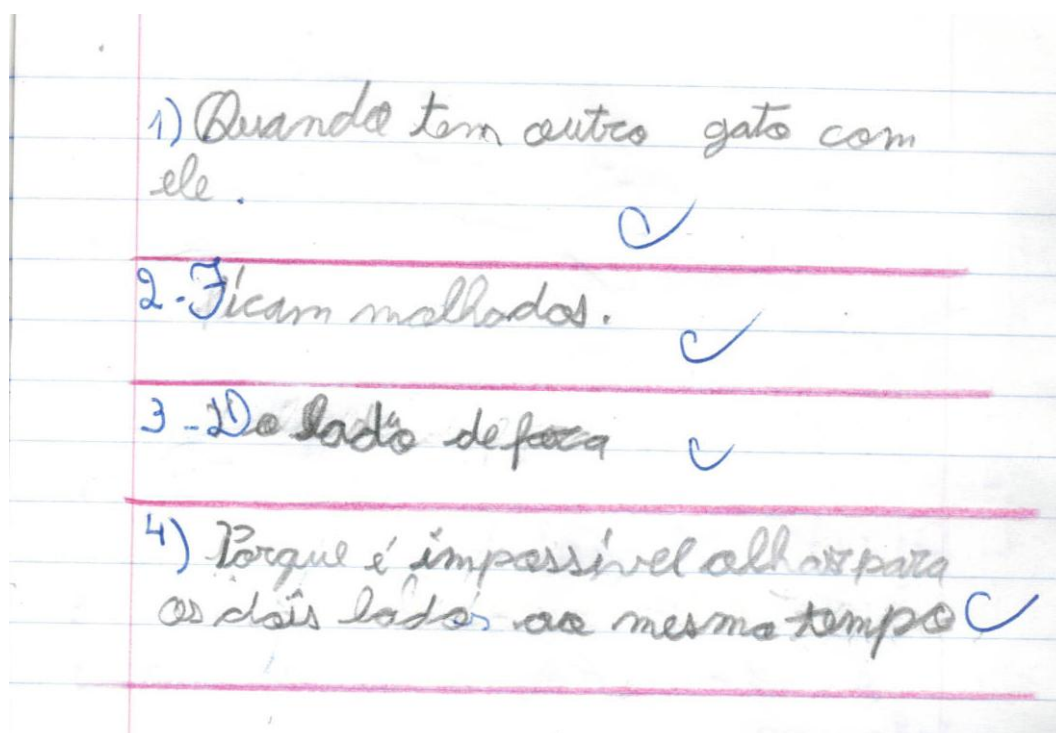 1) Quando tem outro gato com
ele.
2-Ficam malhados.
3-Do lado de fora
4) Porque é impossível olhar para
os dois lados ao mesmo tempo